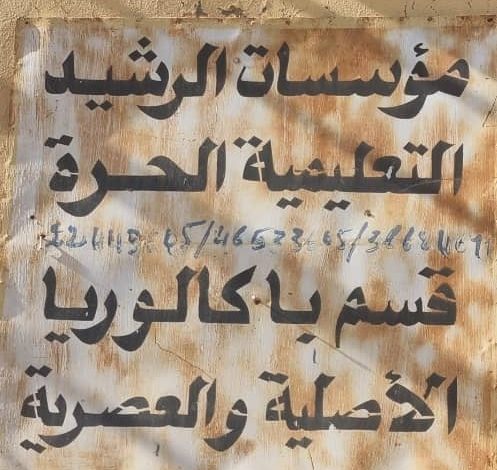 مؤسسات الرشيد
التعليمية الحرة
قسم باكالوريا
الأصلية والعصرية